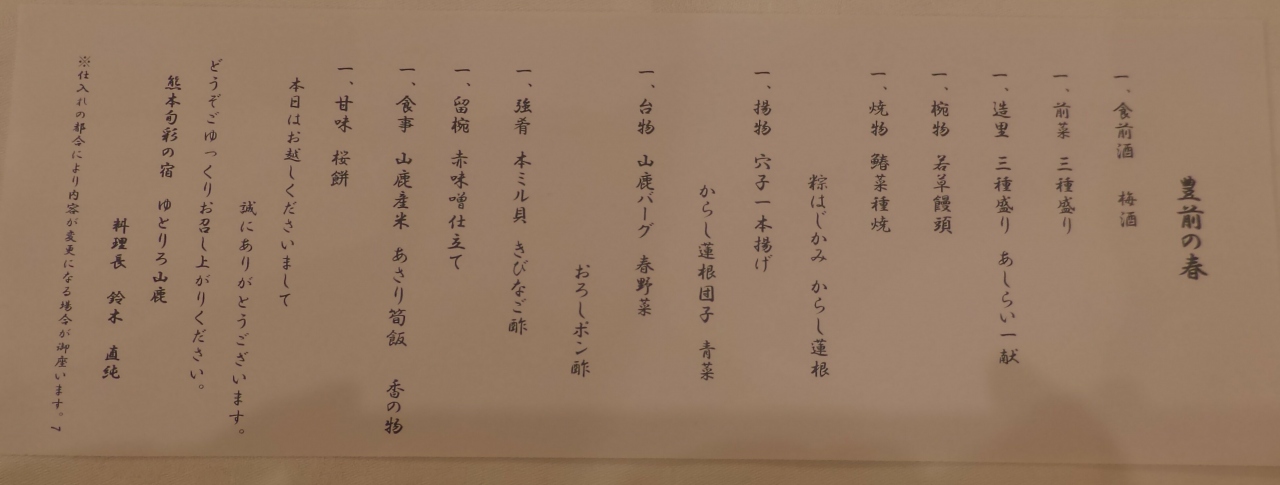 豊前の春
一、食前酒 梅酒
一、前菜 三種盛り
一、造里 三種盛り あしらい一献
一、椀物 若草饅頭
一、焼物 鰆菜種焼
粽はじかみ からし蓮根
一、揚物 穴子一本揚げ
からし蓮根団子 青菜
一、台物 山鹿バーグ 春野菜
おろしポン酢
一、強肴 本ミル貝 きびなご酢
一、留椀 赤味噌仕立て
一、食事 山鹿産米 あさり筍飯 香の物
一、甘味 桜餅
本日はお越しくださいまして
誠にありがとうございます。
どうぞごゆっくりお召し上がりください。
熊本旬彩の宿 ゆとりろ山鹿
料理長 鈴木 直純
※仕入れの都合により内容が変更になる場合が御座います。7